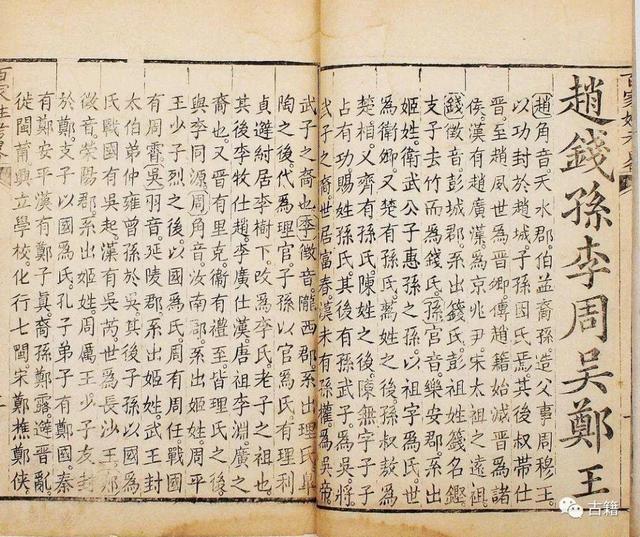 趙錢孫李周吳鄭王
趙角音。天水郡。伯益裔孫造父事周穆王。
以功封於趙城。子孫因氏焉。其後叔帶仕
晋。至趙威世爲晋卿。傳趙籍始滅晋爲諸
侯。漢有趙廣漢爲京兆尹。宋太祖之遠祖。
錢徵音。彭城郡。系出錢氏。彭祖姓籛名鏗
支子去竹而爲錢氏。孫宮音。樂安郡。系出
姬姓。衛武公子惠孫之孫。以祖字爲氏。世
又楚有孫氏。蒍姓之後。孫叔敖爲
楚相。又齊有孫氏。陳姓之後。陳無宇子子
占有功賜姓孫氏。其後有孫武子。爲吳將。
武之裔世居富春。漢末有孫權。爲吳帝
武子之裔也。李徵音。隴西郡。系出理氏。皐
陶之後代爲理官。子孫以官爲氏。有理利
貞避紂居李樹下。改爲李氏。老子之祖也。
其後李牧仕趙。李廣仕漢。唐祖李淵廣之
裔也。又晋有里克。衛有禮至。皆理氏之後。
與李同源。周角音。汝南郡。系出姬姓。周平
王少子烈之後。以國爲氏。周有周任。戰國
有周霄。吳羽音。延陵郡。系出姬姓。武王封
太伯弟仲雍曾孫於吳。其後子孫以國爲
氏。戰國有吳起。漢有吳芮。世爲長沙王。鄭
徵音。滎陽郡。系出姬姓。周厲王少子友封
於鄭。支子以國爲氏。孔子弟子有鄭國。秦
有鄭安平。漢有鄭子真。裔孫鄭露避晋亂。
徙閩莆。興立學校。化行七閩。宋鄭樵鄭俠。
古籍